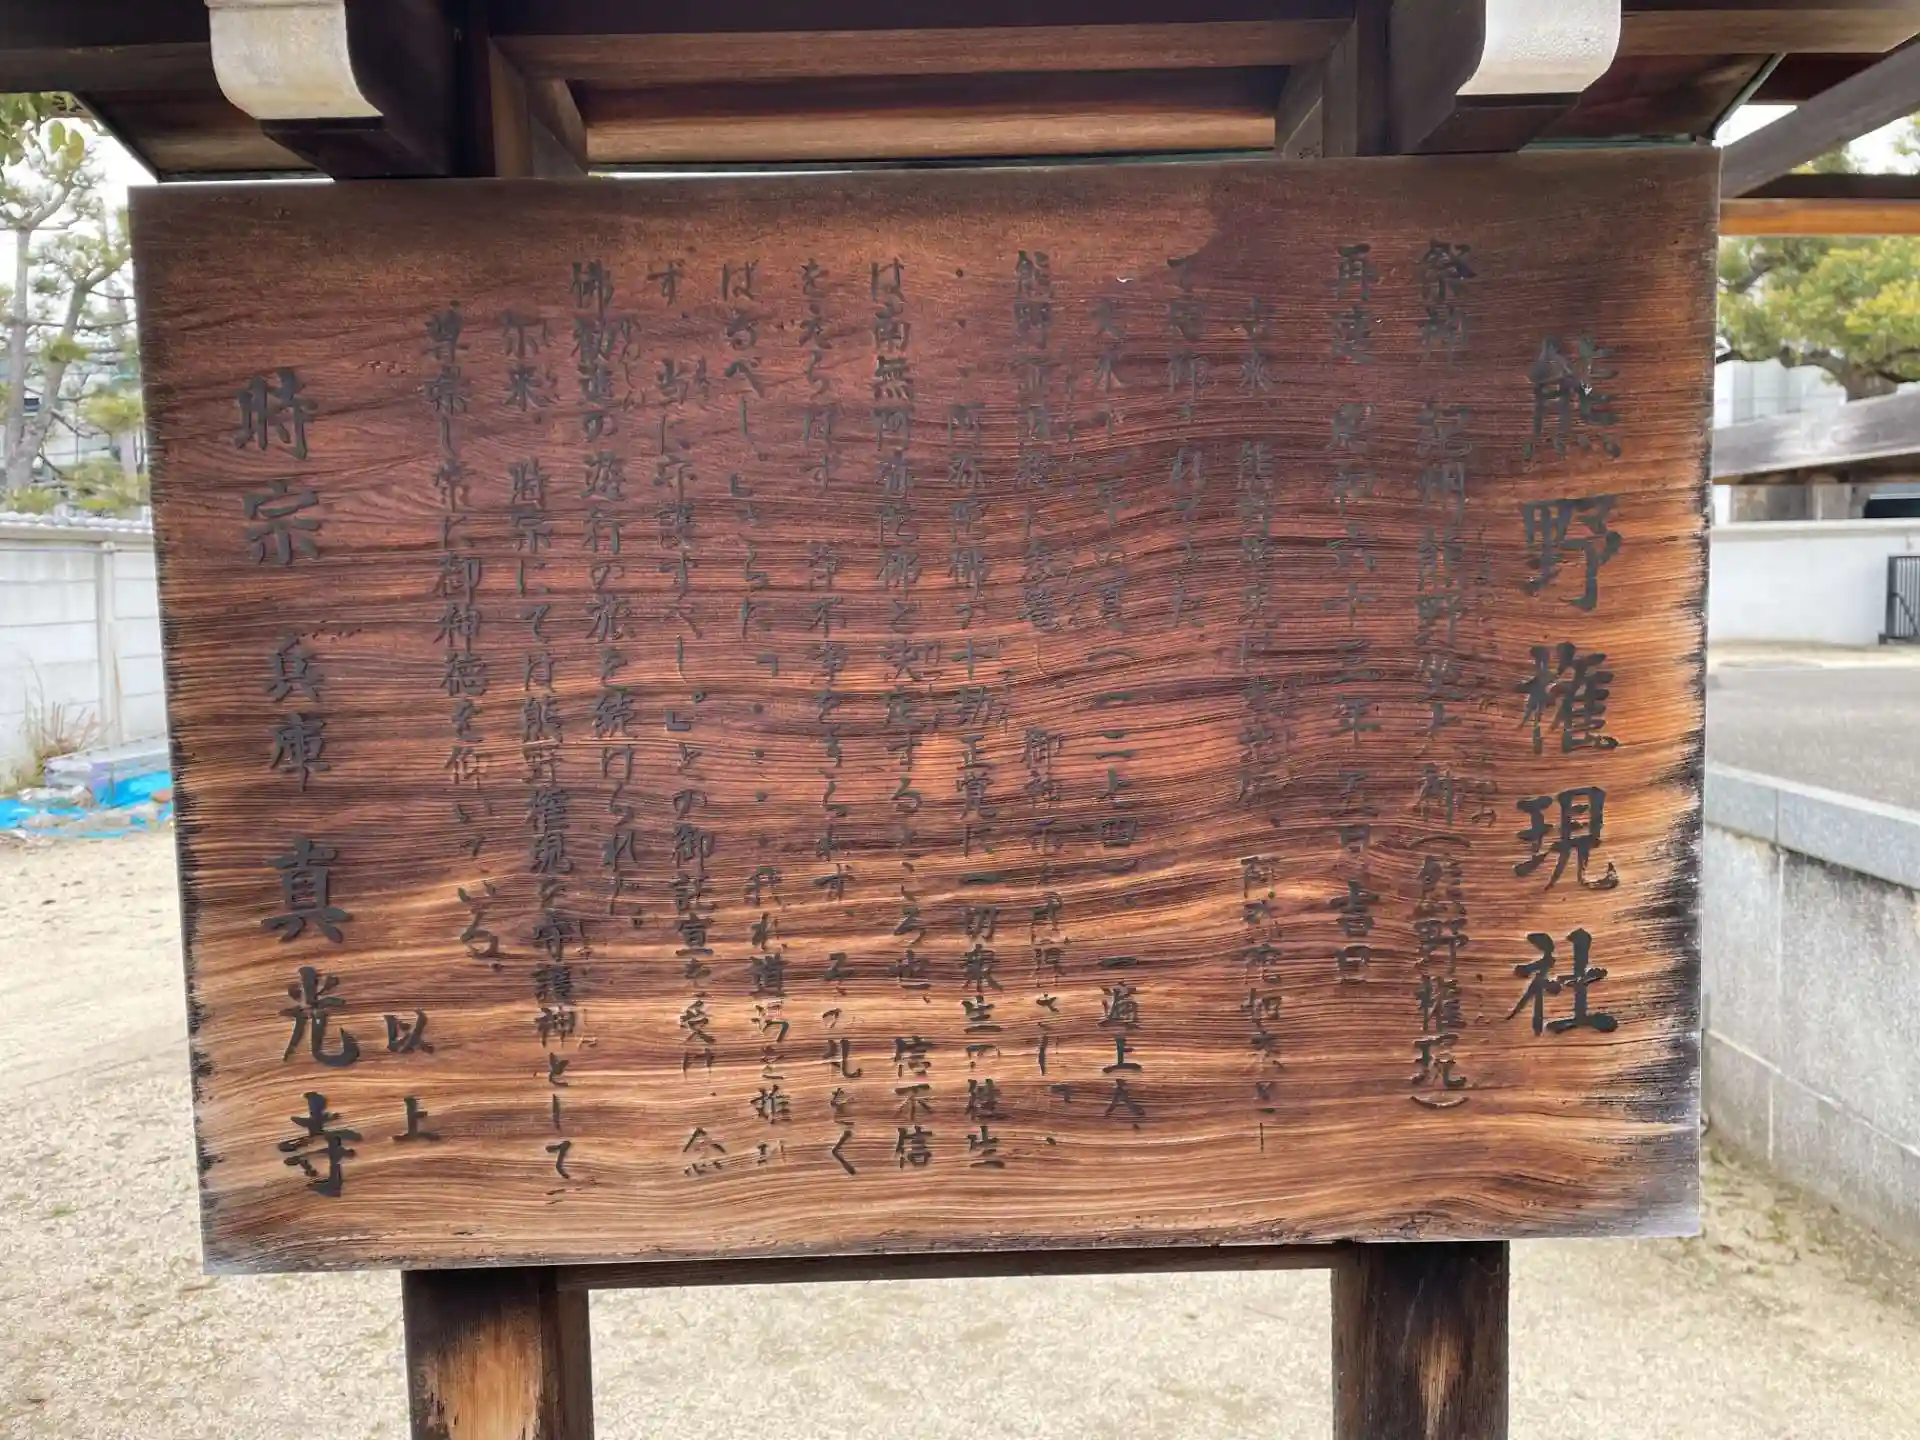 熊野権現社
祭神 紀州熊野坐大神(熊野権現)
再建 昭和六十三年五日吉日
古来、熊野権現は本地が、阿弥陀如来と
て信仰されてきた。
文永十一年の夏(一二七四)、一遍上人、
熊野証誠殿に参篭し、御神示を
・・・阿弥陀佛の十劫正覚に一切衆生の往生
は南無阿弥陀佛と決定するところ也、信不信
をえらばず、浄不浄をきらわず、その札をく
ばるべし。」さらに「・・・・我れ道
ず、当に守護すべし。」との御託宣を受け、念
佛勧進の遊行の旅を続けられた。
尓来、時宗にては熊野権現を守護神として
尊崇し常に御神徳を仰いでいる。
以上
時宗 兵庫 真光寺